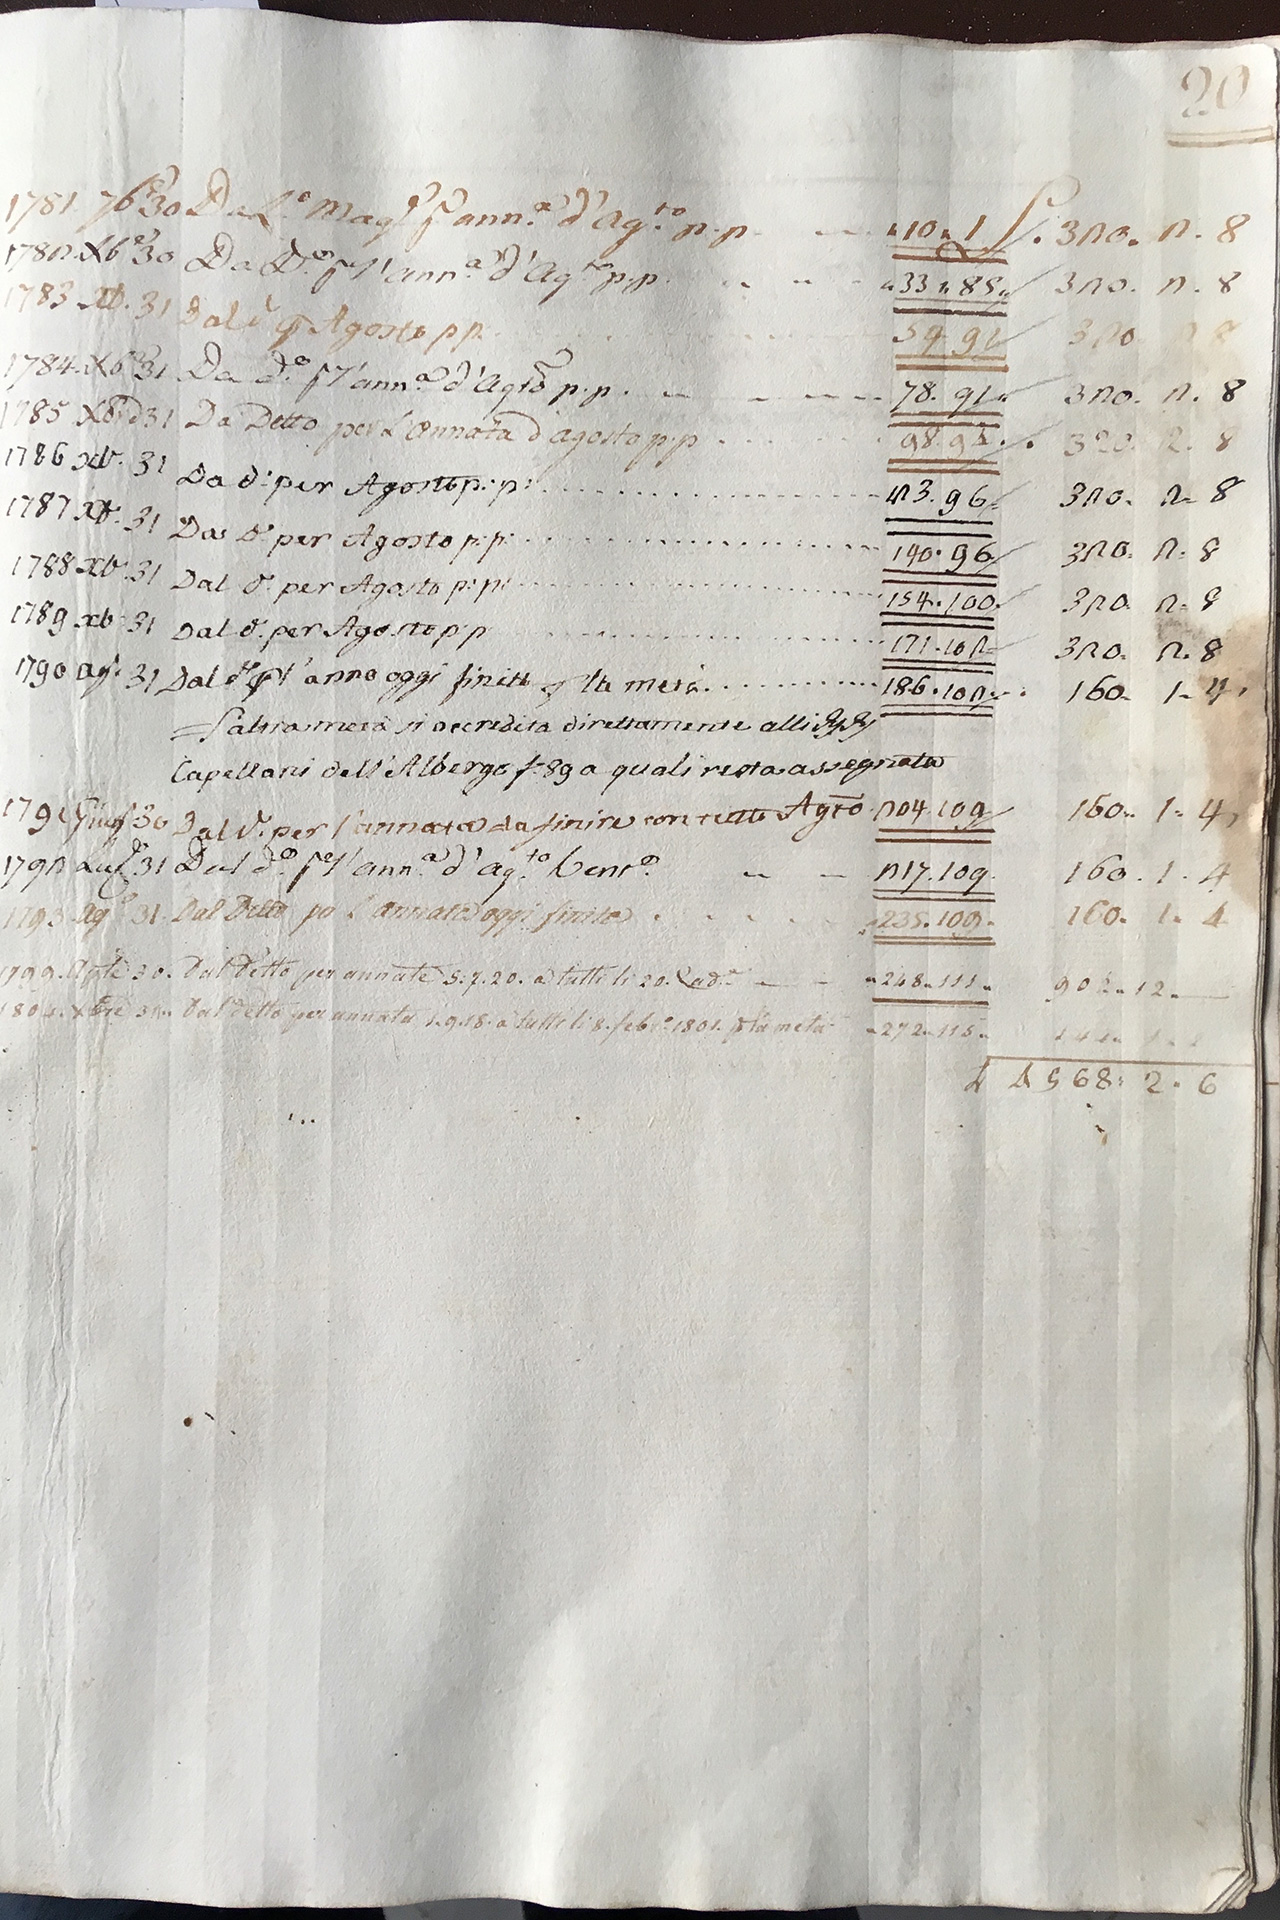 20
1781 7bre 30 Da L.e Mag.o p ann.a d'Ag.to p.p. 10.1 L. 320. 2. 8
1782. Xbre 30 Da D.o p l'ann.a d'Ag.to p.p. 33.85 320. 2. 8
1783 Xb. 31 Dal d. p Agosto p.p. 59.91 320. 2. 8
1784. Xbre 31 Da d.o p l'ann.a d'Agto p.p. 78.91 320. 2. 8
1785 Xbre d 31 Da Detto per L'Annata d'agosto p.p. 98.95 320. 2. 8
1786 xb. 31 Da d. per Agosto p.p. 123.96 320. 2. 8
1787 xb. 31 Da d. per Agosto p.p. 140.96 320. 2. 8
1788 xb. 31 Dal d. per Agosto p.p. 154.100 320. 2. 8
1789 xb. 31 Dal d. per Agosto p.p. 171.102 320. 2. 8
1790 ag. 31 Dal d. p l'anno oggi finito p la metà 186.102 160. 1. 4
= l'altra metà si accredita direttamente alli
Capellani dell'Albergo f. 89 a quali resta assegnata
1791 Giug. 30 Dal d. per l'annata da finire con tutto Agto 204.109 160. 1. 4
1792 31 Dal d.o p l'ann.a d'ag.to 217.109 160. 1. 4
1793 Ag. 31 Dal Detto pr l'annata oggi finita 235.109 160. 1. 4
1799. Agto 30. Dal Detto per annate 5.7.20. a tutti li 20. 248.111 902.12.
1804. Xbre 31. Dal detto per annata 1.9.18. a tutti li 8. febr.o 1801. p la metà 272.115
L 4568. 2. 6